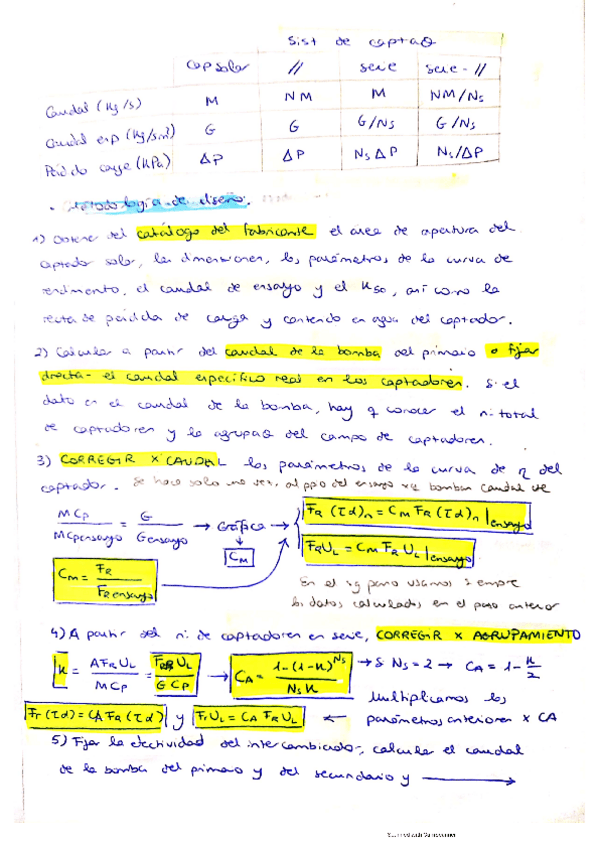 Sist de captaɋ
Cap solar // serie serie - //
Caudal (Kg/s) M NM M NM/Ns
Caudal esp (Kg/sm²) G G G/Ns G/Ns
Pérdida carga (KPa) ΔP ΔP Ns ΔP Ns/ΔP
• Metodología de diseño.
1) Obtener del catálogo del fabricante el area de apertura del
captador solar, las dimensiones, los parámetros de la curva de
rendimiento, el caudal de ensayo y el K50, así como la
recta de pérdida de carga y contenido en agua del captador.
2) Calcular a partir del caudal de la bomba del primario o fijar
directa- el caudal específico real en los captadores. Si el
dato es el caudal de la bomba, hay q conocer el n: total
de captadores y la agrupaɋ del campo de captadores.
3) CORREGIR X CAUDAL los parámetros de la curva de η del
captador. Se hace solo una vez, al ppio del ensayo bomba caudal de
MCp / MCpensayo = G / Gensayo → Gráfica → FR (τα)n = CM FR (τα)n |ensayo
CM FRUL = CM FR UL |ensayo
CM = FR / FR ensayo
En el sig paso usamos siempre
los datos calculados en el paso anterior
4) A partir del n: de captadores en serie, CORREGIR X AGRUPAMIENTO
K = AFRUL / MCp = FRUL / GCp → CA = 1-(1-K)^Ns / Ns K → S Ns = 2 → CA = 1 - K/2
Multiplicamos los
Fr (τα) = CA FR (τα) y FrUL = CA FR UL ← parámetros anteriores x CA
5) Fijar la efectividad del intercambiador, calcular el caudal
de la bomba del primario y del secundario y →
Scanned with CamScanner